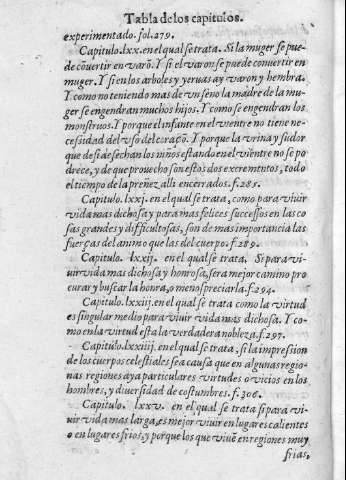 Tabla de los capitulos.
experimentado. fol. 279.
Capitulo. lxx. en el qual se trata. Si la muger se pue-
de cõuertir en varõ. Y si el varon se puede conuertir en
muger. Y si en los arboles y yeruas ay varon y hembra.
Y como no teniendo mas de vn seno la madre de la mu-
ger se engendran muchos hijos. Y como se engendran los
monstruos. Y porque el infante en el vientre no tiene ne-
cessidad del vso del coraçõ. Y porque la vrina y sudor
que desi desechan los niños estando en el vientre no se po-
drece, y de que prouecho son estos dos excremẽtos, todo
el tiempo de la preñez alli encerrados. f. 285.
Capitulo. lxxj. en el qual se trata, como para viuir
vida mas dichosa y para mas felices successos en las co
sas grandes y difficultosas, son de mas importancia las
fuerças del animo que las del cuerpo. f. 289.
Capitulo. lxxij. en el qual se trata. Si para vi-
uir vida mas dichosa y honrosa, sera mejor camino pro
curar y buscar la honra, o menospreciarla. f. 294.
Capitulo. lxxiij. en el qual se trata como la virtud
es singular medio para viuir vida mas dichosa. Y co-
mo en la virtud esta la verdadera nobleza. f. 297.
Capitulo. lxxiiij. en el qual se trata, si la impression
de los cuerpos celestiales sea causa que en algunas regio-
nas regiones aya particulares virtudes o vicios en los
hombres, y diuersidad de costumbres. f. 306.
Capitulo. lxxv. en el qual se trata si para vi-
uir vida mas larga, es mejor viuir en lugares calientes
o en lugares frios, y porque los que viuẽ en regiones muy
frias,